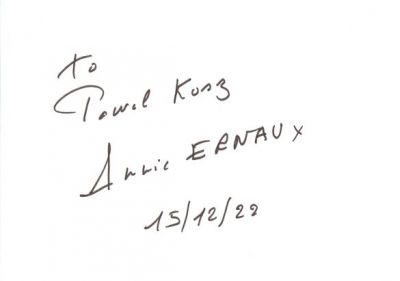 to
Pawel Kosz
Annie ERNAUX
15/12/22